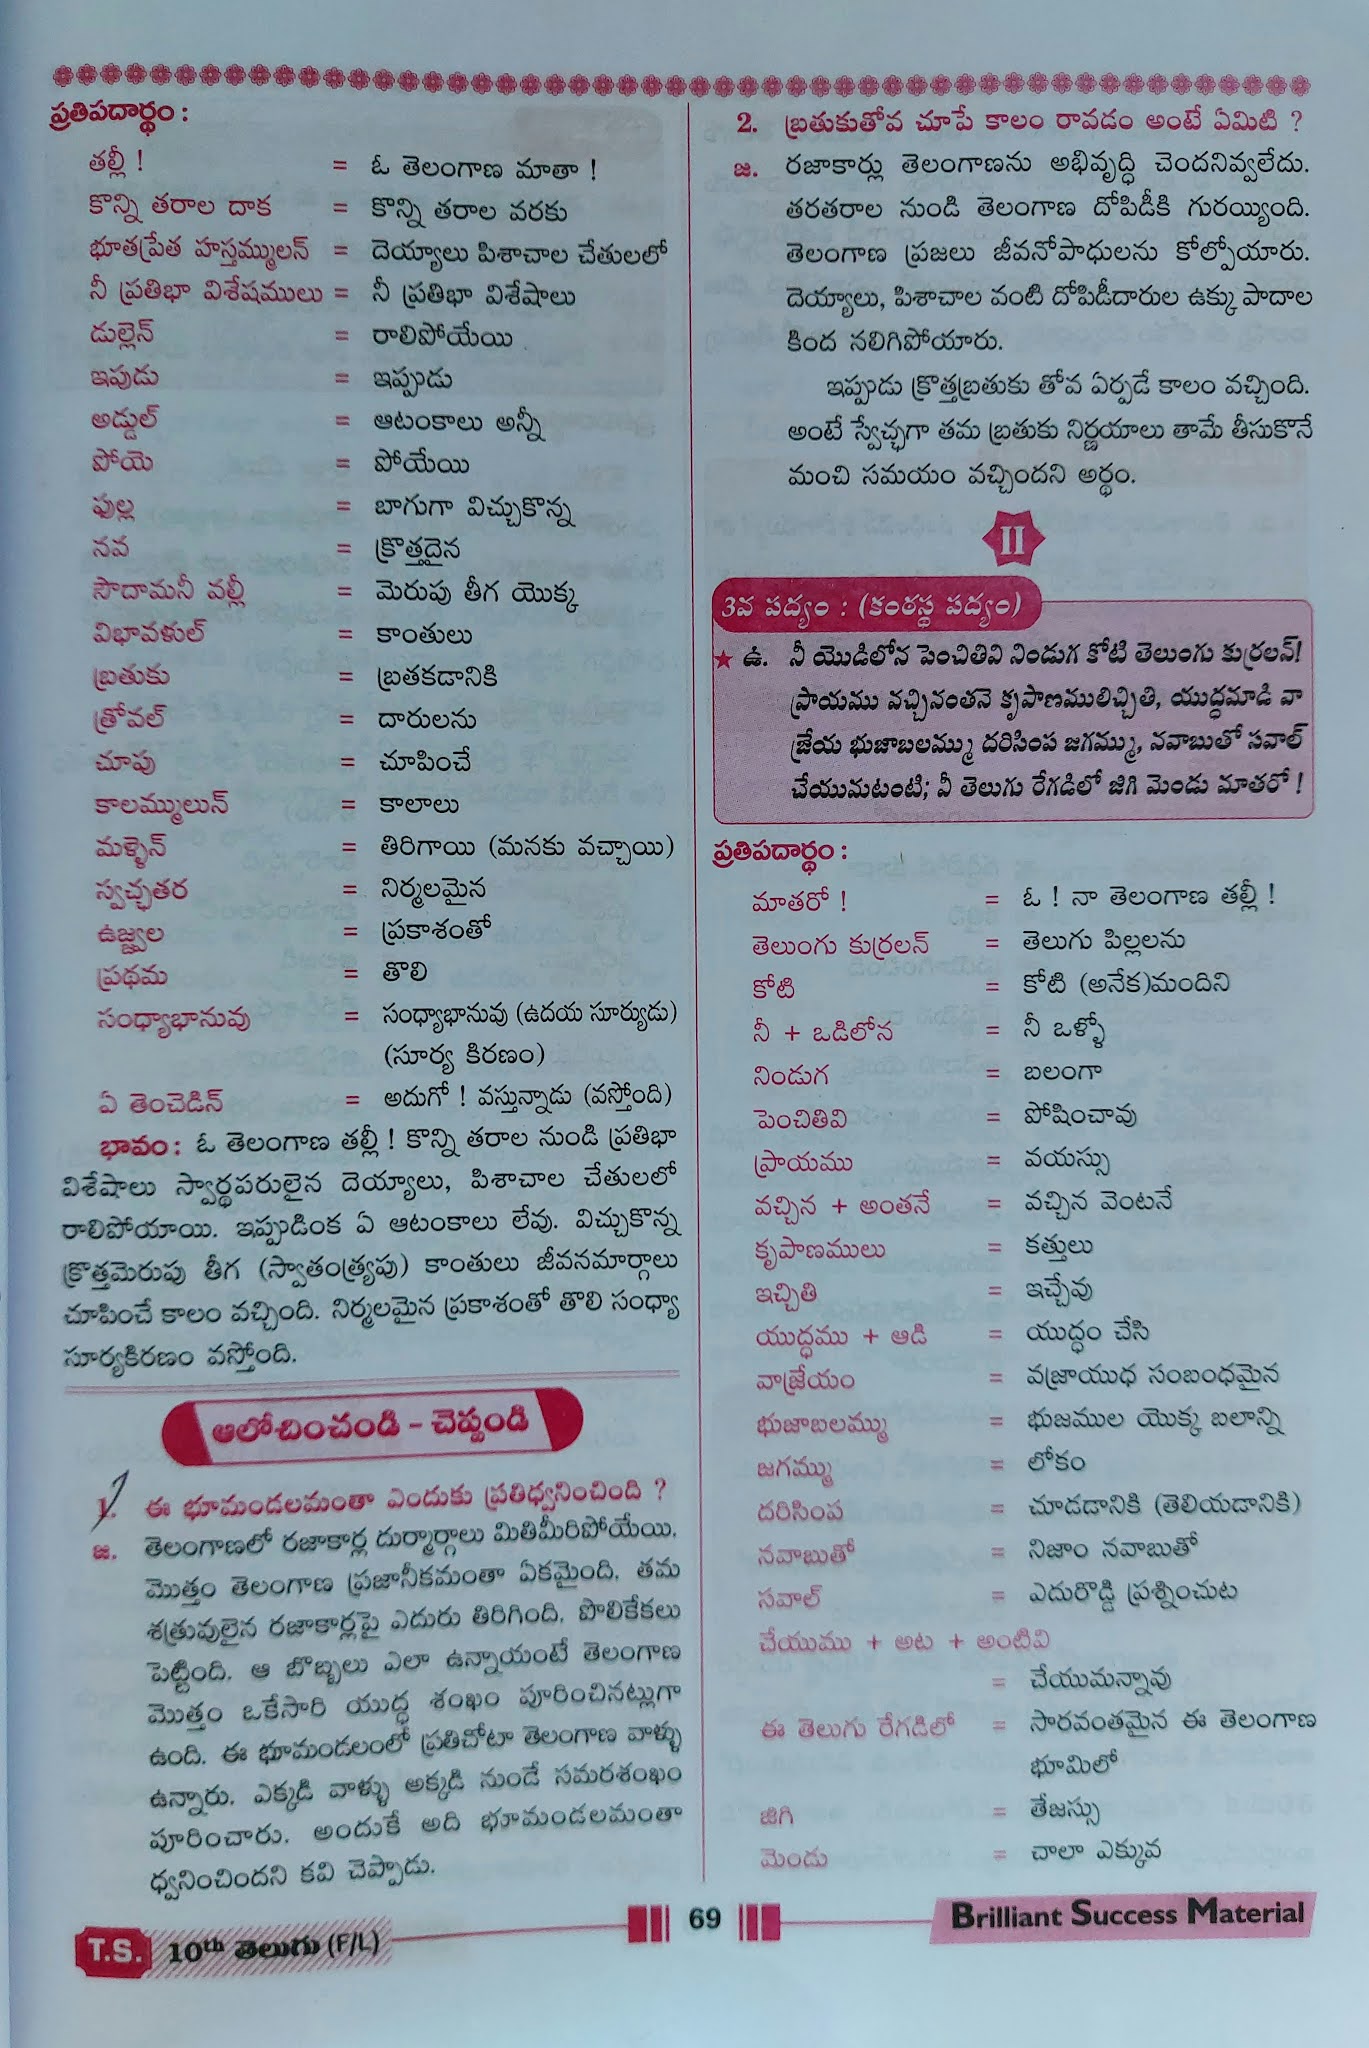 ప్రతిపదార్థం :
తల్లీ ! = ఓ తెలంగాణ మాతా !
కొన్ని తరాల దాక = కొన్ని తరాల వరకు
భూతప్రేత హస్తమ్ములన్ = దెయ్యాలు పిశాచాల చేతులలో
నీ ప్రతిభా విశేషములు = నీ ప్రతిభా విశేషాలు
డుల్లెన్ = రాలిపోయేయి
ఇపుడు = ఇప్పుడు
అడ్డుల్ = ఆటంకాలు అన్నీ
పోయె = పోయేయి
ఫుల్ల = బాగుగా విచ్చుకొన్న
నవ = క్రొత్తదైన
సౌదామనీ వల్లీ = మెరుపు తీగ యొక్క
విభావళుల్ = కాంతులు
బ్రతుకు = బ్రతకడానికి
త్రోవల్ = దారులను
చూపు = చూపించే
కాలమ్ములున్ = కాలాలు
మళ్ళెన్ = తిరిగాయి (మనకు వచ్చాయి)
స్వచ్ఛతర = నిర్మలమైన
ఉజ్జ్వల = ప్రకాశంతో
ప్రథమ = తొలి
సంధ్యాభానువు = సంధ్యాభానువు (ఉదయ సూర్యుడు)
(సూర్య కిరణం)
ఏ తెంచెడిన్ = అదుగో ! వస్తున్నాడు (వస్తోంది)
భావం : ఓ తెలంగాణ తల్లీ ! కొన్ని తరాల నుండి ప్రతిభా
విశేషాలు స్వార్థపరులైన దెయ్యాలు, పిశాచాల చేతులలో
రాలిపోయాయి. ఇప్పుడింక ఏ ఆటంకాలు లేవు. విచ్చుకొన్న
క్రొత్తమెరుపు తీగ (స్వాతంత్ర్యపు) కాంతులు జీవనమార్గాలు
చూపించే కాలం వచ్చింది. నిర్మలమైన ప్రకాశంతో తొలి సంధ్యా
సూర్యకిరణం వస్తోంది.
ఆలోచించండి - చెప్పండి
1. ఈ భూమండలమంతా ఎందుకు ప్రతిధ్వనించింది ?
జ. తెలంగాణలో రజాకార్ల దుర్మార్గాలు మితిమీరిపోయేయి.
మొత్తం తెలంగాణ ప్రజానీకమంతా ఏకమైంది. తమ
శత్రువులైన రజాకార్లపై ఎదురు తిరిగింది. పొలికేకలు
పెట్టింది. ఆ బొబ్బలు ఎలా ఉన్నాయంటే తెలంగాణ
మొత్తం ఒకేసారి యుద్ధ శంఖం పూరించినట్లుగా
ఉంది. ఈ భూమండలంలో ప్రతిచోటా తెలంగాణ వాళ్ళు
ఉన్నారు. ఎక్కడి వాళ్ళు అక్కడి నుండే సమరశంఖం
పూరించారు. అందుకే అది భూమండలమంతా
ధ్వనించిందని కవి చెప్పాడు.
2. బ్రతుకుతోవ చూపే కాలం రావడం అంటే ఏమిటి ?
జ. రజాకార్లు తెలంగాణను అభివృద్ధి చెందనివ్వలేదు.
తరతరాల నుండి తెలంగాణ దోపిడీకి గురయ్యింది.
తెలంగాణ ప్రజలు జీవనోపాధులను కోల్పోయారు.
దెయ్యాలు, పిశాచాల వంటి దోపిడీదారుల ఉక్కు పాదాల
కింద నలిగిపోయారు.
ఇప్పుడు క్రొత్తబ్రతుకు తోవ ఏర్పడే కాలం వచ్చింది.
అంటే స్వేచ్ఛగా తమ బ్రతుకు నిర్ణయాలు తామే తీసుకొనే
మంచి సమయం వచ్చిందని అర్థం.
II
3వ పద్యం : (కంఠస్థ పద్యం)
★ ఉ. నీ యొడిలోన పెంచితివి నిండుగ కోటి తెలుంగు కుర్రలన్!
ప్రాయము వచ్చినంతనె కృపాణములిచ్చితి, యుద్ధమాడి వా
జ్రేయ భుజాబలమ్ము దరిసింప జగమ్ము, నవాబుతో సవాల్
చేయుమటంటి; వీ తెలుగు రేగడిలో జిగి మెండు మాతరో !
ప్రతిపదార్థం :
మాతరో ! = ఓ ! నా తెలంగాణ తల్లీ !
తెలుంగు కుర్రలన్ = తెలుగు పిల్లలను
కోటి = కోటి (అనేక)మందిని
నీ + ఒడిలోన = నీ ఒళ్ళో
నిండుగ = బలంగా
పెంచితివి = పోషించావు
ప్రాయము = వయస్సు
వచ్చిన + అంతనే = వచ్చిన వెంటనే
కృపాణములు = కత్తులు
ఇచ్చితి = ఇచ్చేవు
యుద్ధము + ఆడి = యుద్ధం చేసి
వాజ్రేయం = వజ్రాయుధ సంబంధమైన
భుజాబలమ్ము = భుజముల యొక్క బలాన్ని
జగమ్ము = లోకం
దరిసింప = చూడడానికి (తెలియడానికి)
నవాబుతో = నిజాం నవాబుతో
సవాల్ = ఎదురొడ్డి ప్రశ్నించుట
చేయుము + అట + అంటివి
= చేయుమన్నావు
ఈ తెలుగు రేగడిలో = సారవంతమైన ఈ తెలంగాణ
భూమిలో
జిగి = తేజస్సు
మెండు = చాలా ఎక్కువ
T.S. 10th తెలుగు (F/L)
69
Brilliant Success Material